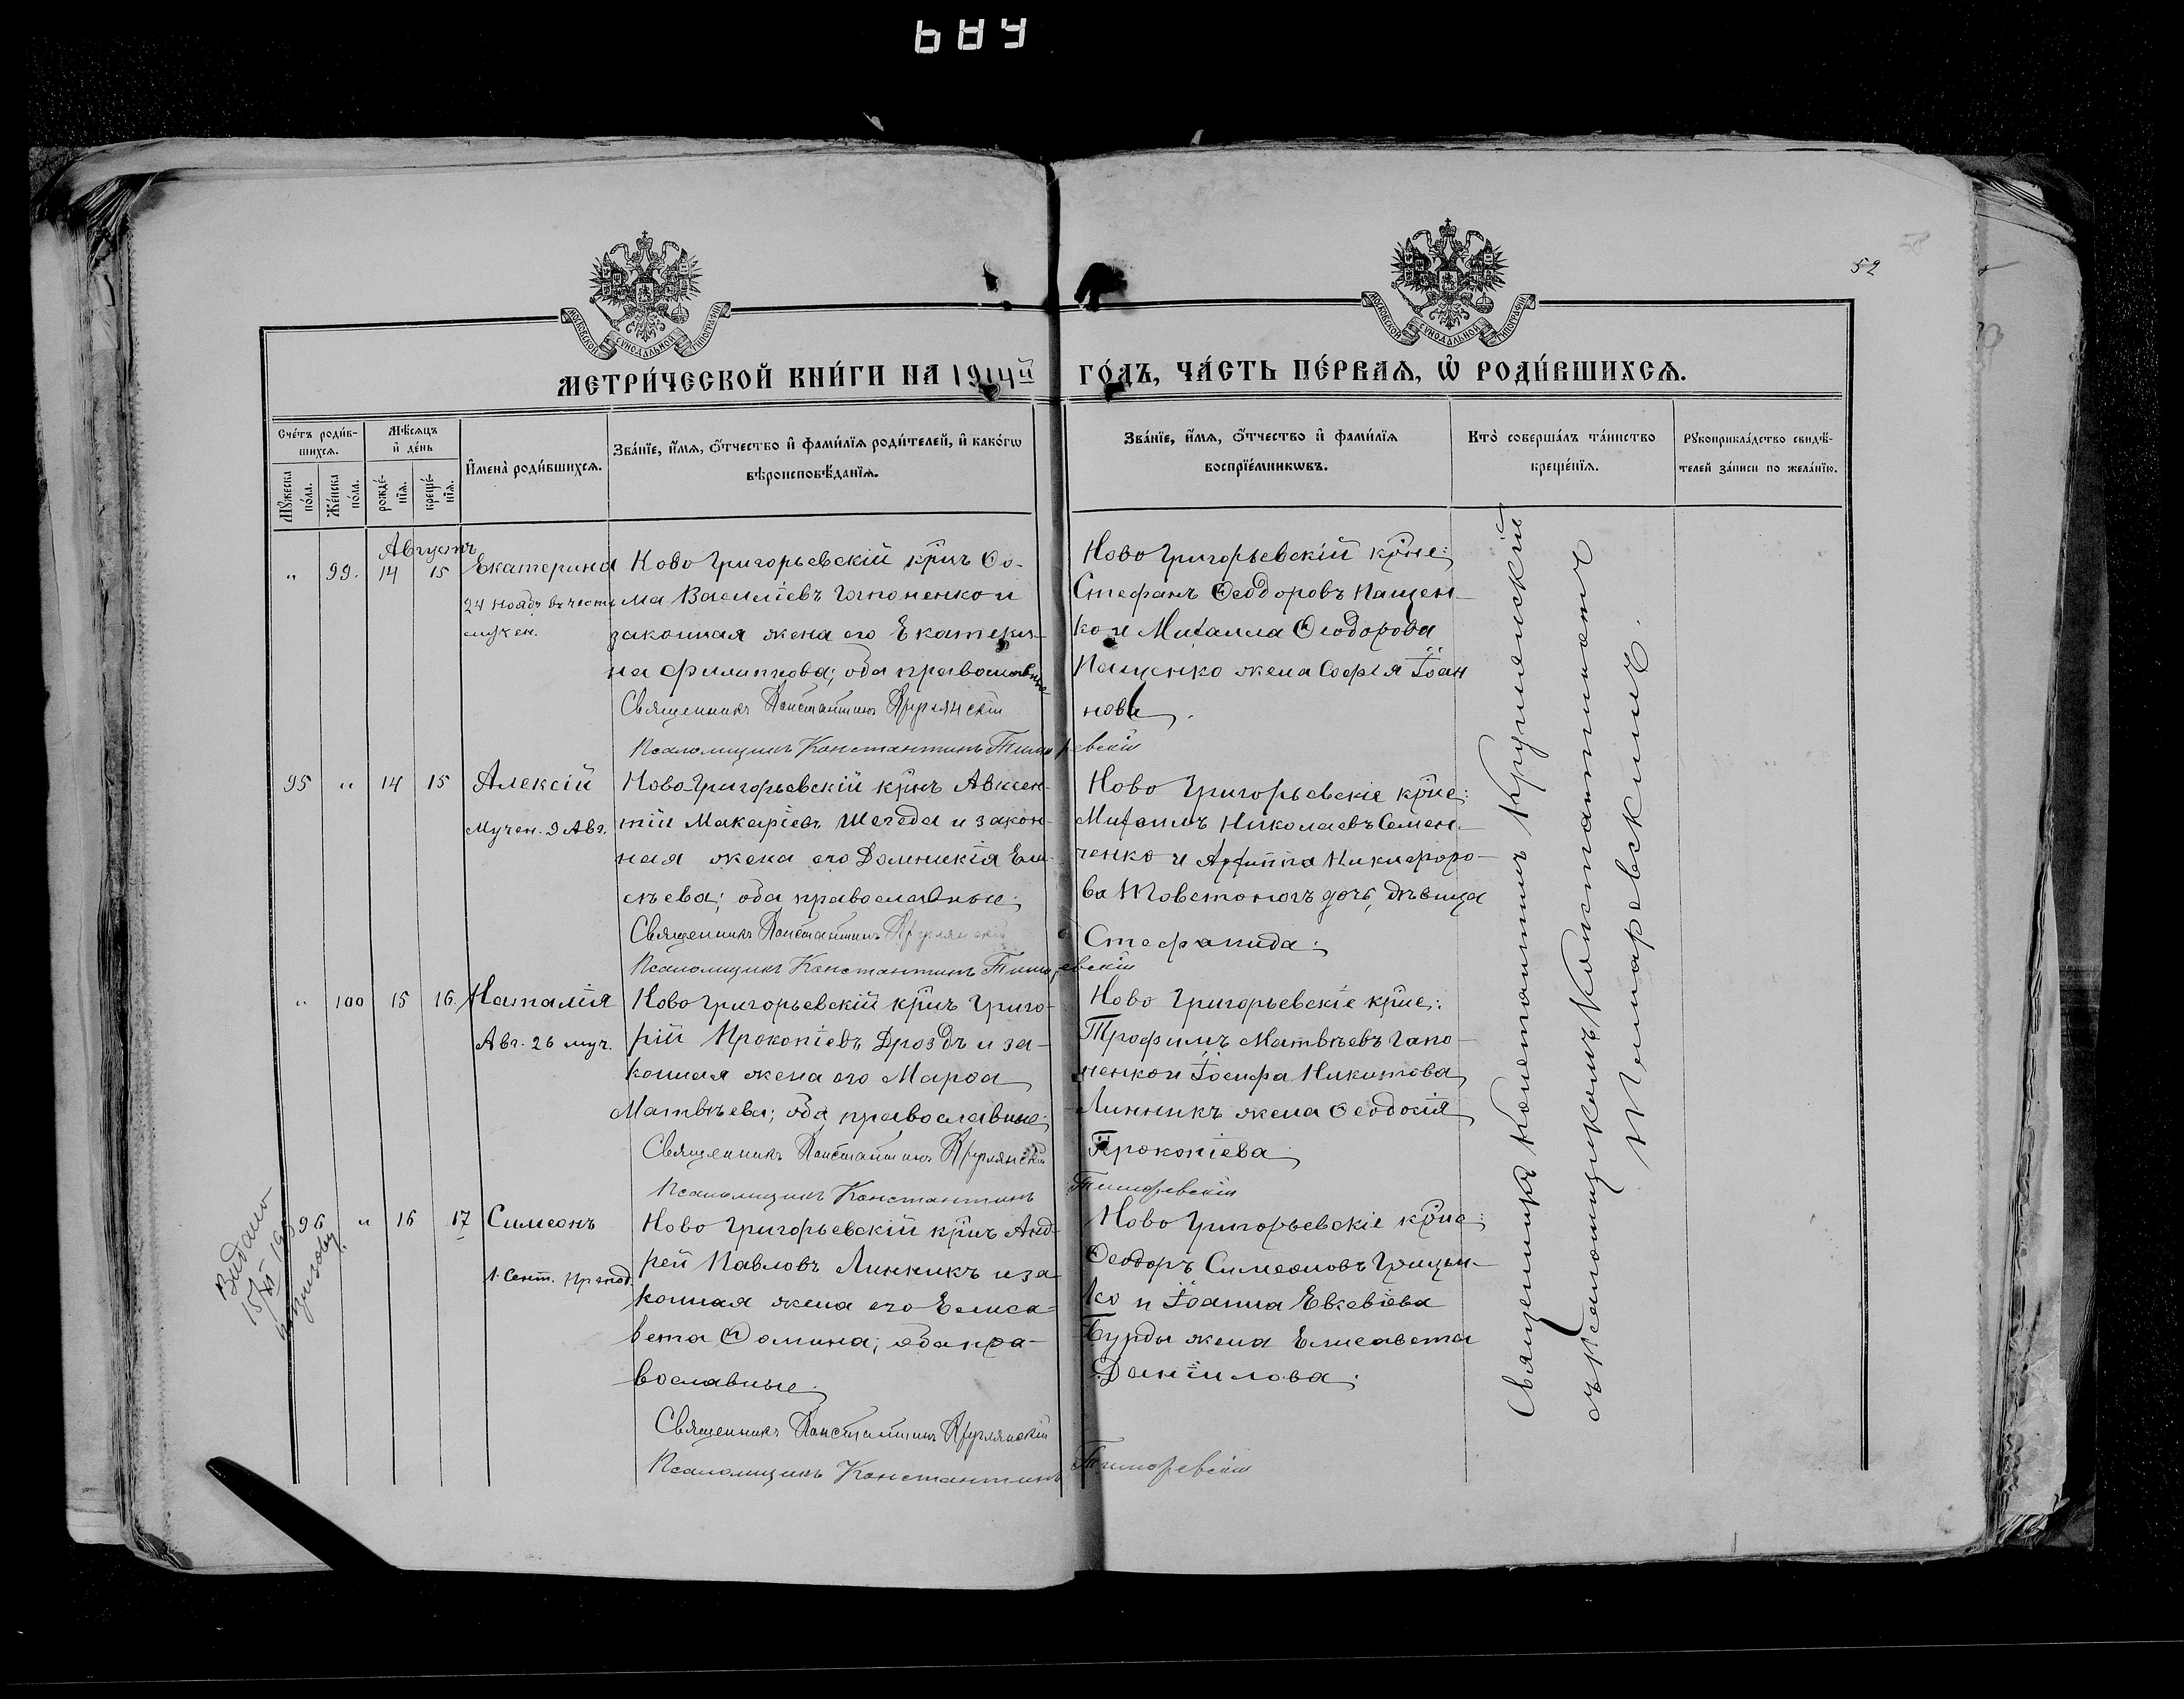 689
52
МОСКОВСКОЙ СУНОДАЛЬНОЙ ТИПОГРАФІИ
МОСКОВСКОЙ СУНОДАЛЬНОЙ ТИПОГРАФІИ
МЕТРИ́ЧЕСКОЙ КНИ́ГИ НА 1914й ГО́ДЪ, ЧА́СТЬ ПЕ́РВАѦ, Ѡ҆ РОДИ́ВШИХСѦ.
Сче́тъ роди́в-
шихсѧ.
Мꙋ́жеска по́ла.
Же́нска по́ла.
Мѣ́сѧцъ
и҆ де́нь
рожде́-
нїѧ.
креще́-
нїѧ.
И҆мена̀ роди́вшихсѧ.
Зва́нїе, и҆́мѧ, ѻ҆́тчество и҆ фами́лїѧ роди́телей, и҆ како́гѡ
вѣроисповѣ́данїѧ.
Зва́нїе, и҆́мѧ, ѻ҆́тчество и҆ фами́лїѧ
воспрїе́мникѡвъ.
Кто̀ соверша́лъ та́инство
креще́нїѧ.
Рꙋкоприкла́дство свидѣ́-
телей за́писи по жела́нїю.
Августъ
„ 99. 14 15 Екатерина
24 нояб. въ честь
мучен.
Ново Григорьевскій крнъ Ѳо-
ма Василіевъ Гапоненко и
законная жена его Екатери-
на Филиппова; оба православные
Священникъ Константинъ Крутянскій
Псаломщикъ Константинъ Тиморевскій
Ново Григорьевскій крне:
Стефанъ Ѳеодоровъ Пащен-
ко и Михаила Ѳеодорова
Пащенко жена Софія Іоан
нова.
95 „ 14 15 Алексій
Мучен. 9 Авг.
Ново Григорьевскій крнъ Авксен-
тій Макаріевъ Шегеда и закон-
ная жена его Домникія Ели-
сѣева; оба православные;
Священникъ Константинъ
Псаломщикъ Константинъ Тиморевскій
Ново Григорьевскіе крне:
Михаилъ Николаевъ Семен-
ченко и Архиппа Никифоро-
ва Товстоногъ дочь, дѣвица
Стефанида;
„ 100 15 16 Наталія
Авг. 26 муч.
Ново Григорьевскій крнъ Григо-
рій Прокопіевъ Дроздъ и за-
конная жена его Марѳа
Матвѣева; оба православные;
Священникъ Константинъ
Псаломщикъ Константинъ Тиморевскій
Ново Григорьевскіе крне:
Трофимъ Матвѣевъ Гапо-
ненко и Іосифа Никитова
Линникъ жена Ѳеодосія
Прокопіева
96 „ 16 17 Симеонъ
1. Сент. Препод.
Ново Григорьевскій крнъ Анд-
рей Павловъ Линникъ и за
конная жена его Елиса-
вета Ѳомина; оба пра-
вославные;
Священникъ Константинъ
Псаломщикъ Константинъ Тиморевскій
Ново Григорьевскіе крне:
Ѳеодоръ Симеоновъ Грицен-
ко и Іоанна Евсевіева
Бурды жена Елисавета
Даніилова;
Видано
15/XI 19
Священникъ Константинъ
съ Псаломщикомъ Константиномъ
Тиморевскимъ.